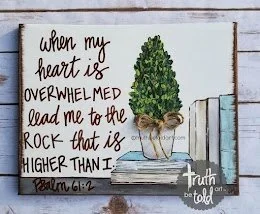 when my
heart is
OVERWHELMED
lead me to the
ROCK that is
HIGHER THAN I.
Psalm 61:2
Truth
be told
art